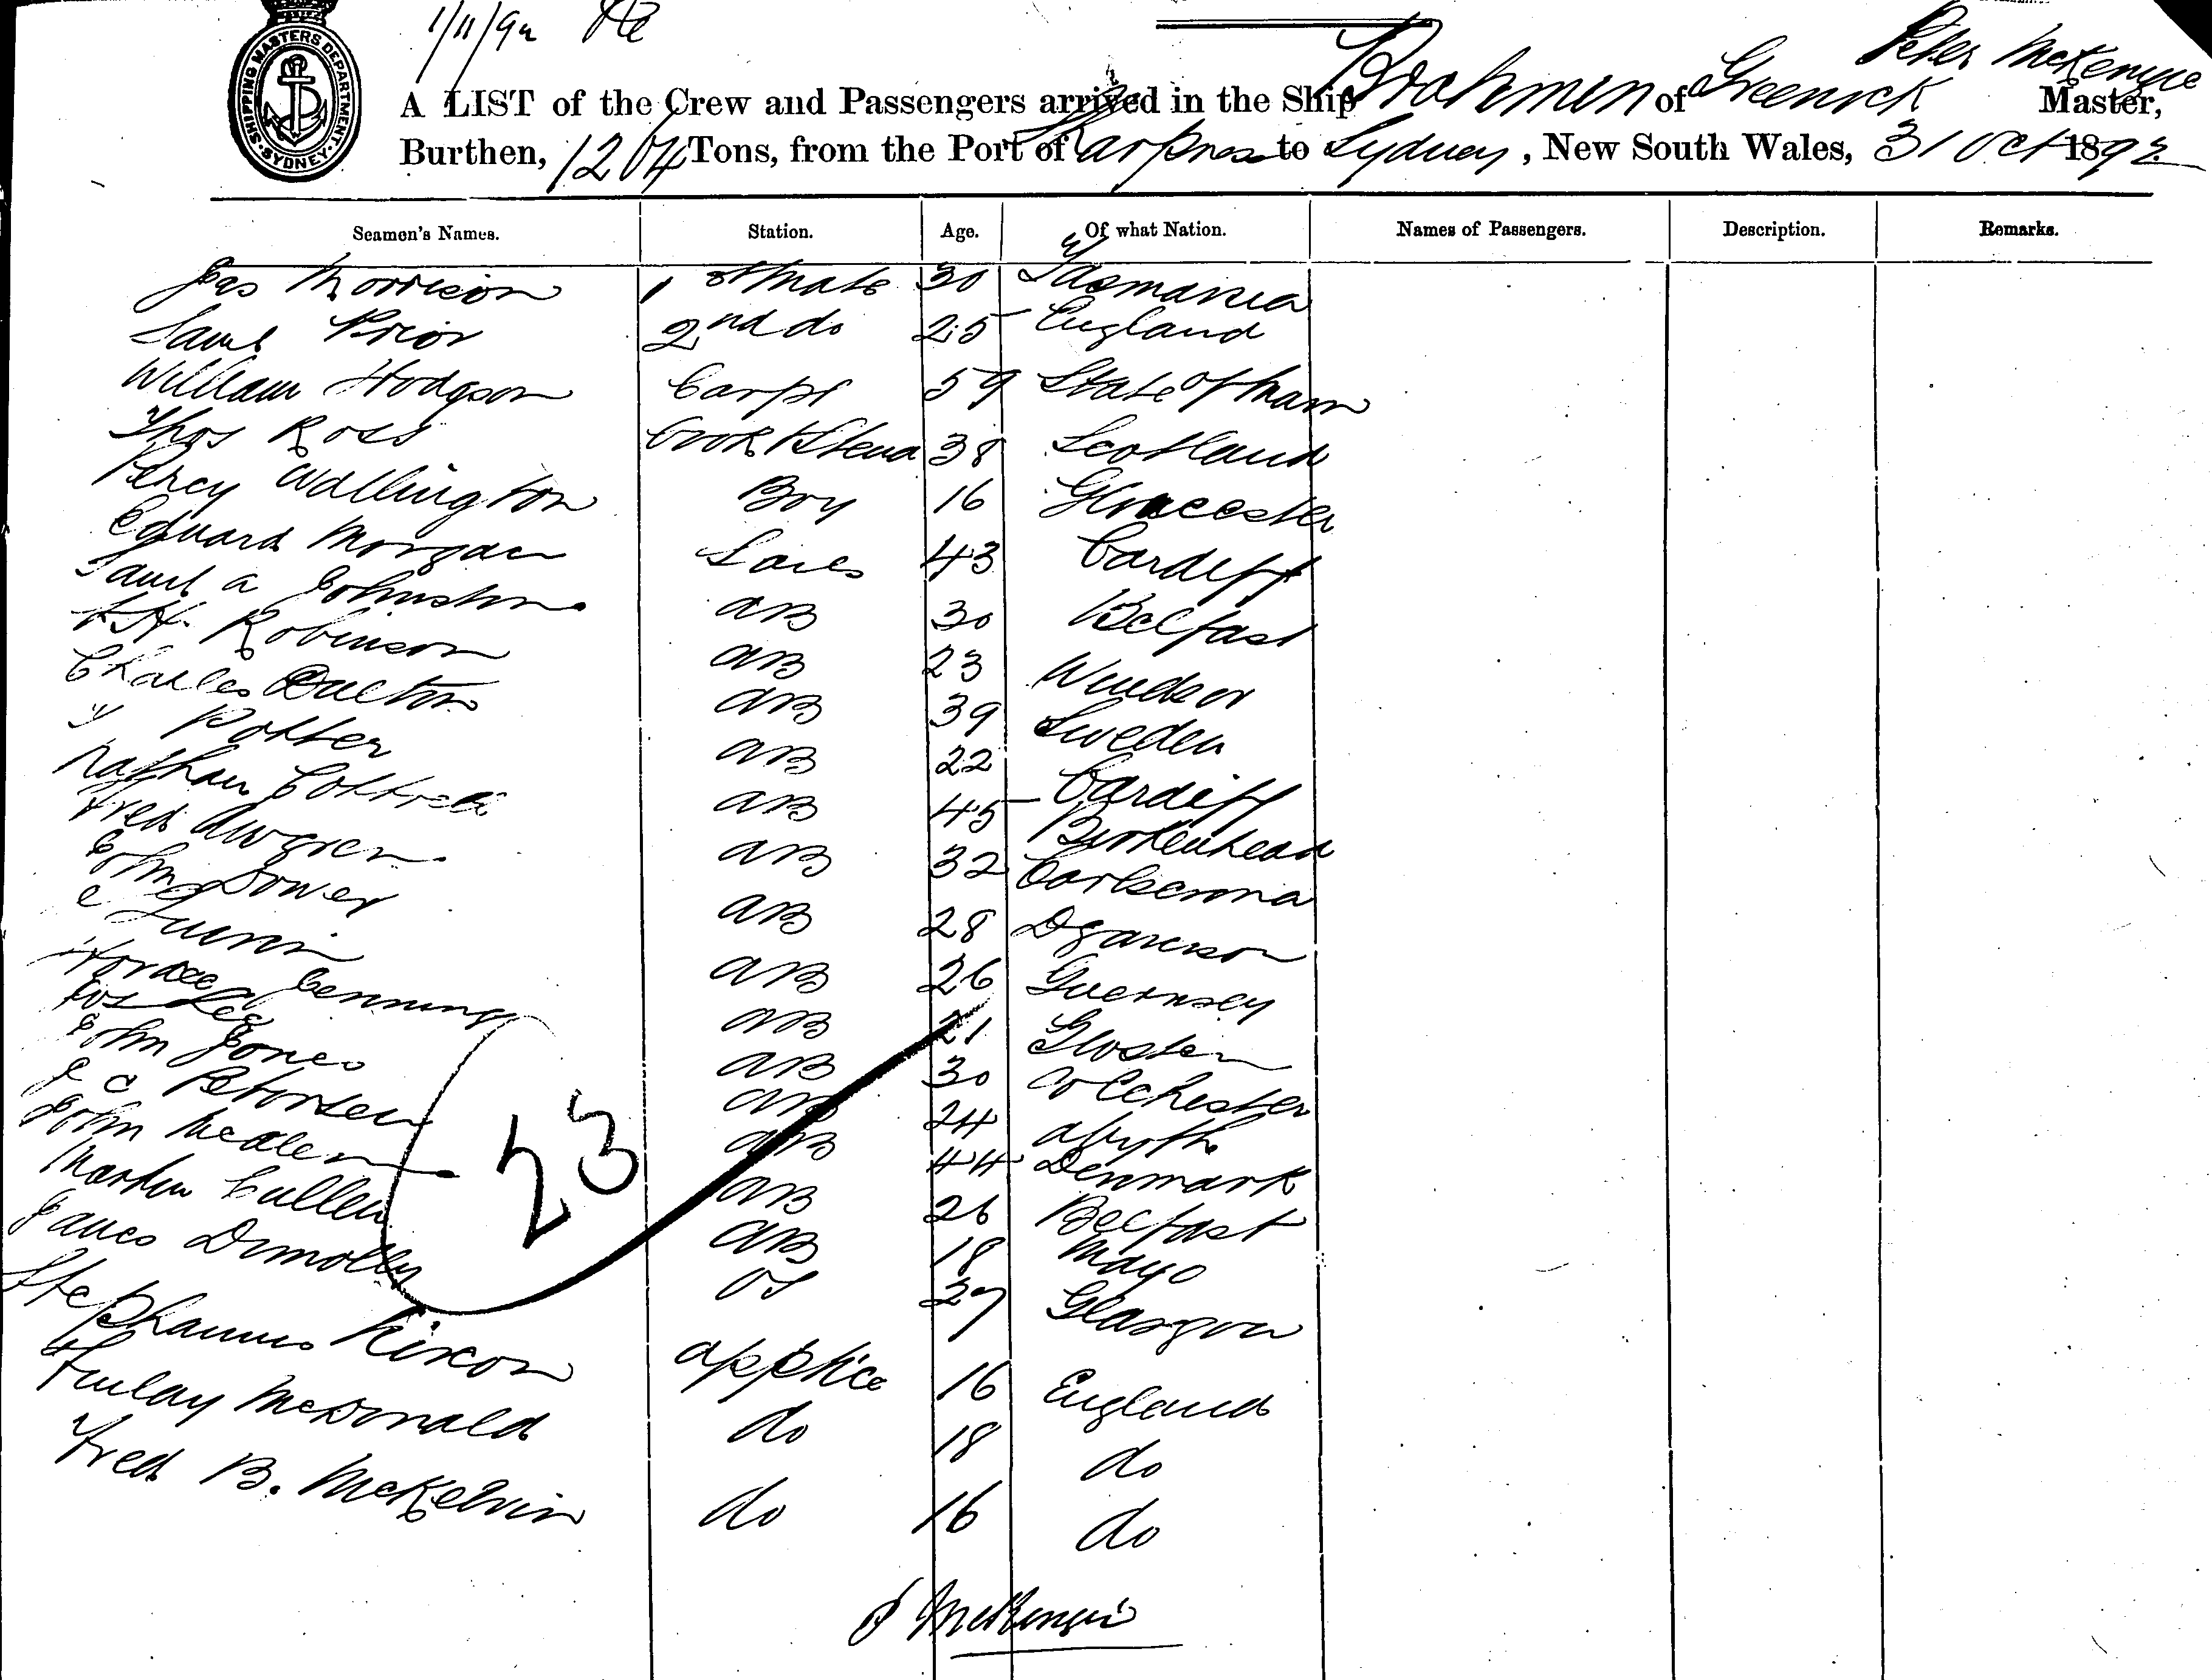 1/11/92
SHIPPING MASTERS DEPARTMENT. SYDNEY.
Peter McKenzie
A LIST of the Crew and Passengers arrived in the Ship Brahmin of Greenock Master,
Burthen, 1264 Tons, from the Port of Sharpness to Sydney, New South Wales, 31 Oct 1892
Seamen's Names. Station. Age. Of what Nation. Names of Passengers. Description. Remarks.
Jas Morrison 1st Mate 30 Tasmania
Saml Prior 2nd do 25 England
William Hodgson Carpt 59 State of Mann
Thos Ross Cook & Stewd 38 Scotland
Percy Wallington Boy 16 Gloucester
Edward Morgan 43 Cardiff
Saml A Johnston AB 30 Belfast
Robinson AB 23 Windsor
Charles Dalton AB 39 Sweden
Potter AB 22 Cardiff
Nathan Cottrell AB 45 Birkenhead
Fred AB 32
John Power AB 28
AB 26 Guernsey
Horace Jennings AB 21 Gloster
Lee AB 30 Colchester
John Jones AB 24
J C Petersen AB 44 Denmark
John AB 26 Belfast
Martin Cullen AB 18 Mayo
James OS 27 Glasgow
23
Stephanus Nixon apptice 16 England
Finlay McDonald do 18 do
Fred B. McKelvin do 16 do
P McKenzie